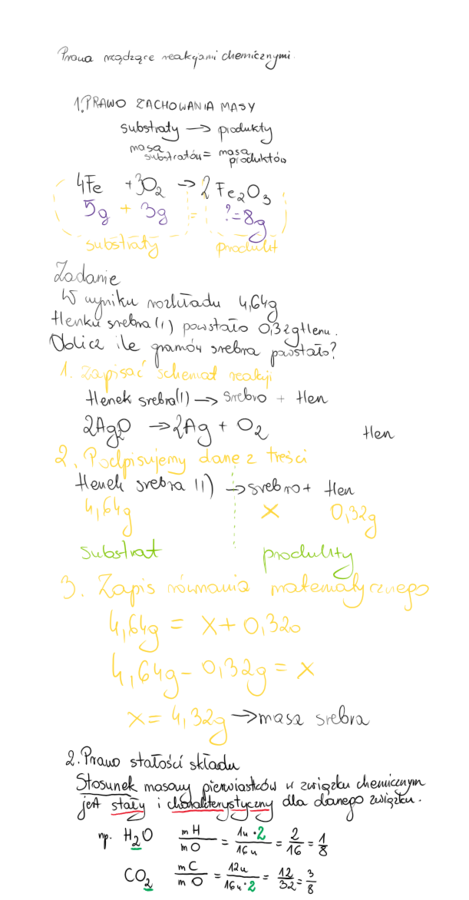 Prawa rządzące reakcjami chemicznymi
1. PRAWO ZACHOWANIA MASY
substraty → produkty
masa substratów = masa produktów
4Fe + 3O₂ → 2Fe₂O₃
5g + 3g = ? = 8g
substraty produkt
Zadanie
W wyniku rozkładu 4,64g
tlenku srebra(I) powstało 0,32g tlenu.
Oblicz ile gramów srebra powstało?
1. Zapisać schemat reakcji
tlenek srebra(I) → srebro + tlen
2Ag₂O → 2Ag + O₂ tlen
2. Podpisujemy dane z treści
tlenek srebra (I) → srebro + tlen
4,64g X 0,32g
substrat produkty
3. Zapis równania matematycznego
4,64g = X + 0,320
4,64g - 0,32g = X
X = 4,32g → masa srebra
2. Prawo stałości składu
Stosunek masowy pierwiastków w związku chemicznym
jest stały i charakterystyczny dla danego związku.
np. H₂O mH/mO = 1u·2/16u = 2/16 = 1/8
CO₂ mC/mO = 12u/16u·2 = 12/32 = 3/8